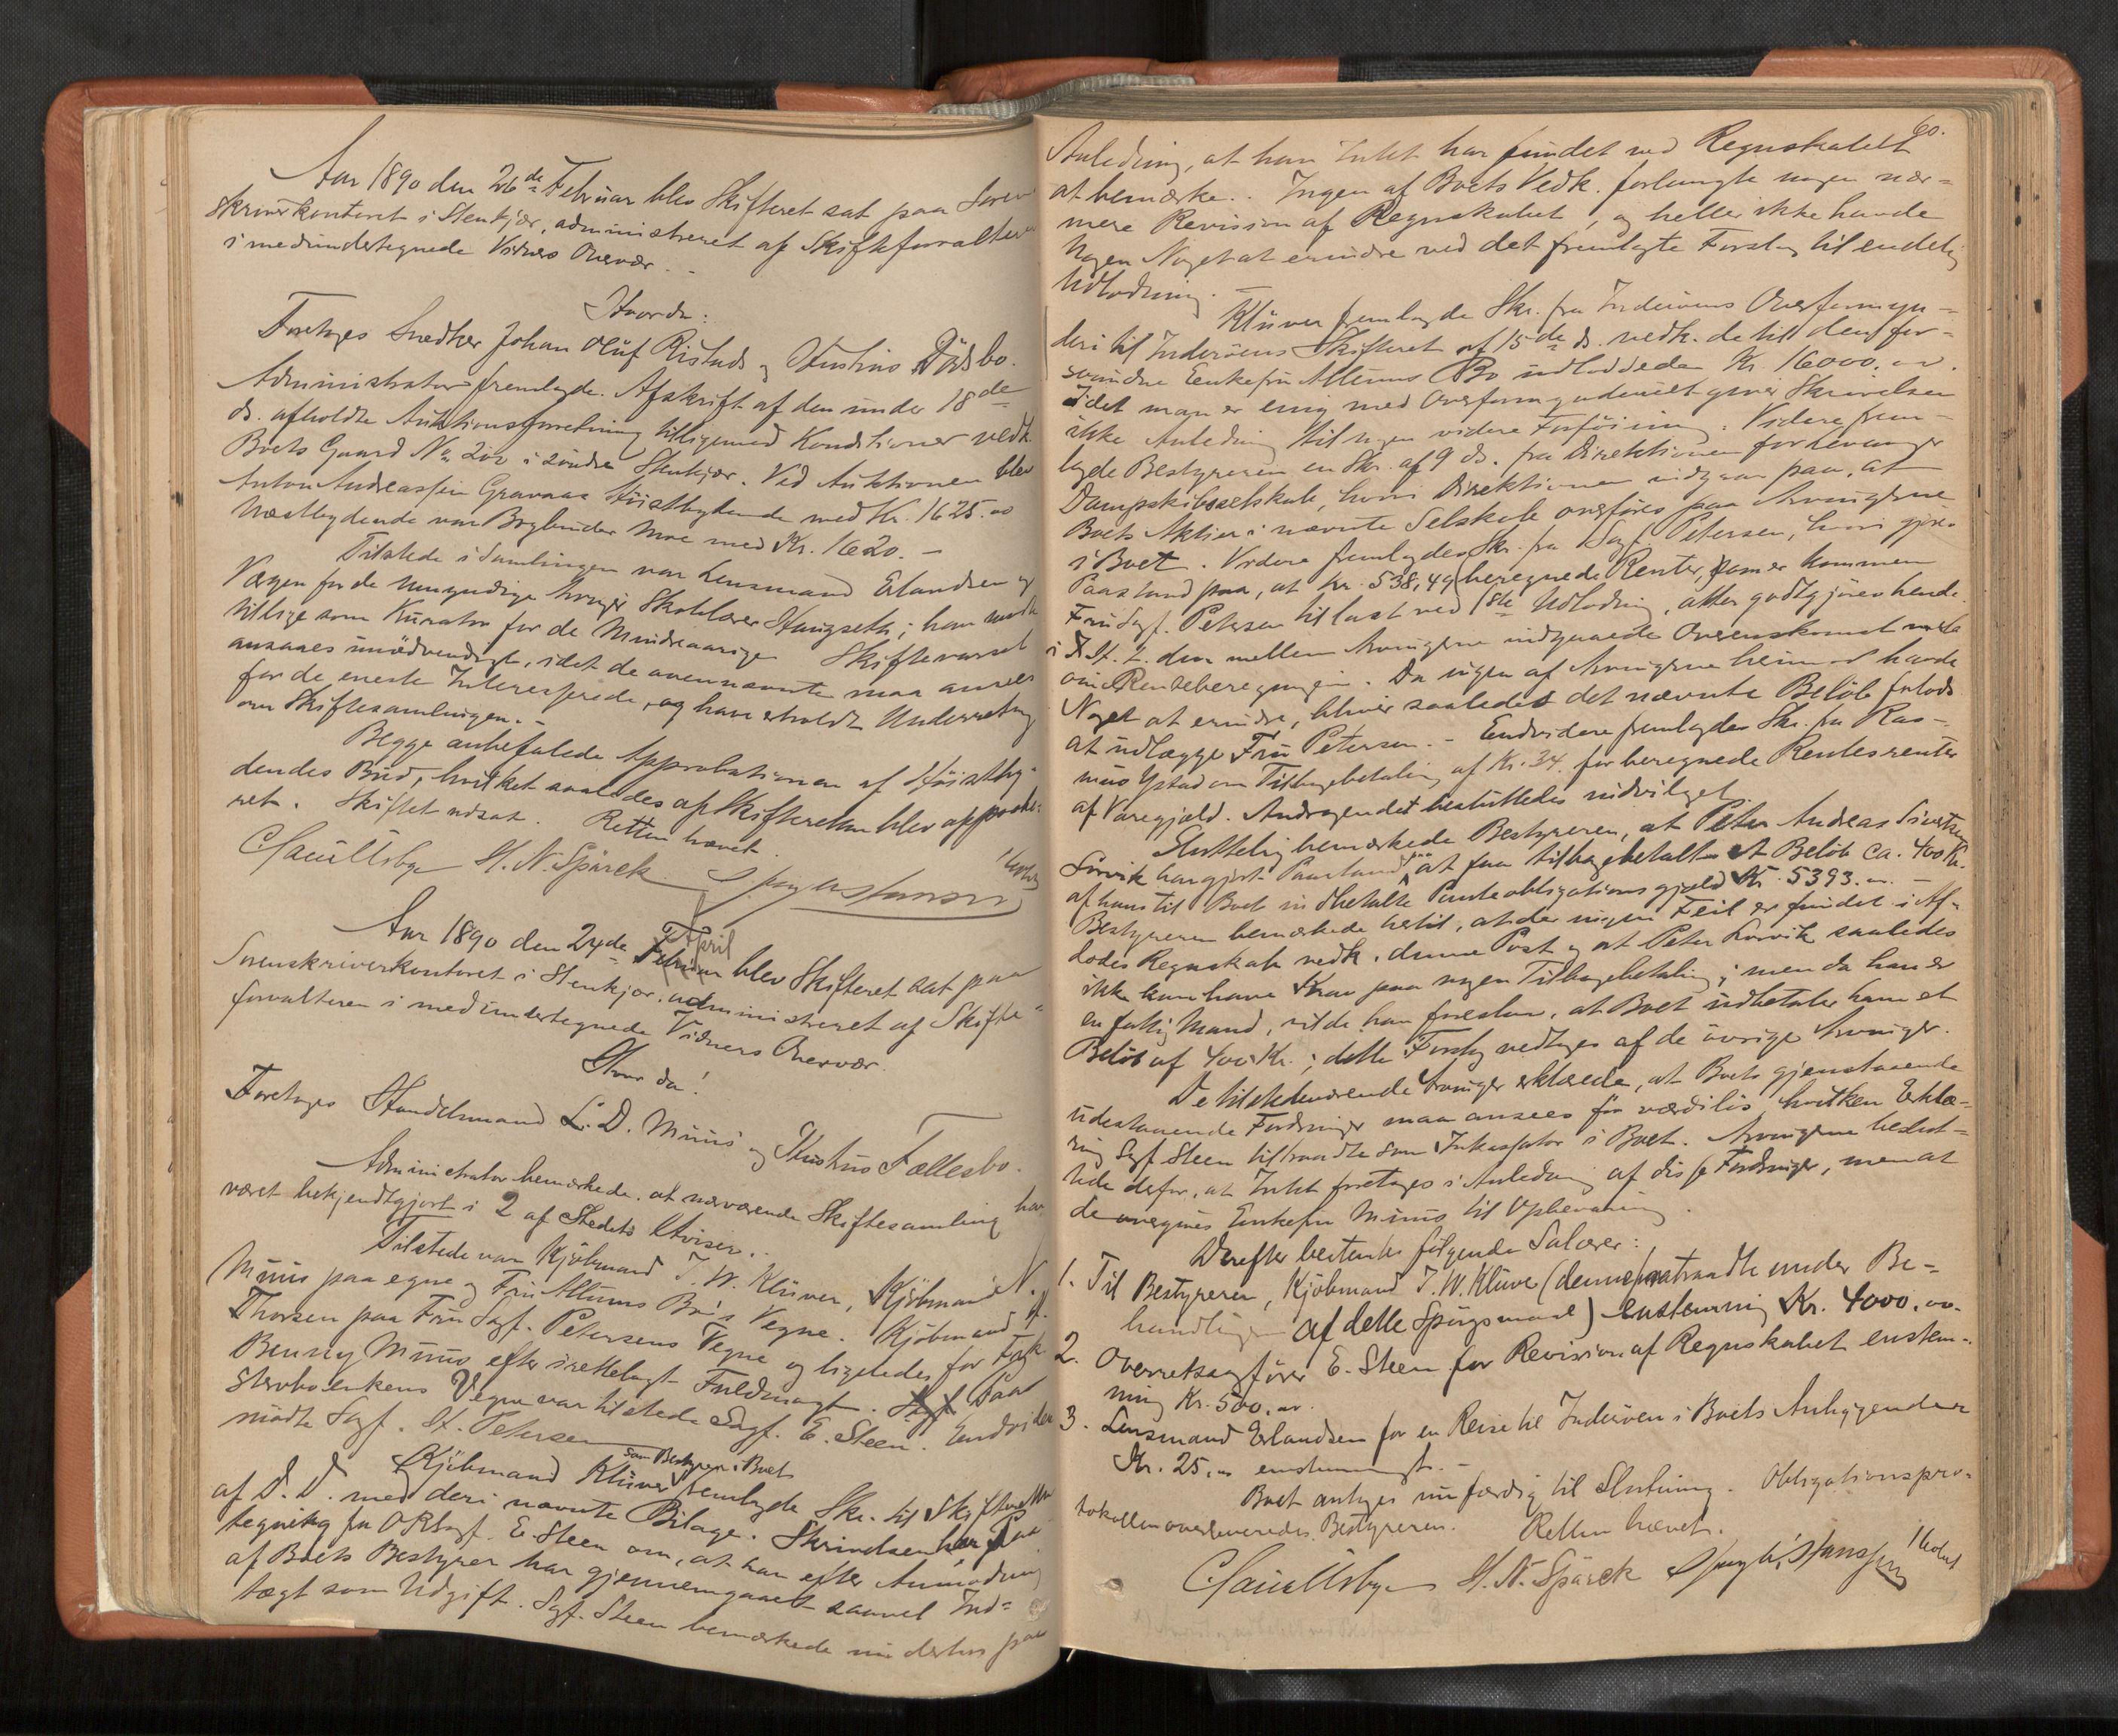 Aar 1890 den 26de Februar blev Skifteret sat paa Soren
skriverkontoret i Stenkjær, administreret af Skifteforvalteren
i medundertegnede Vidners Overvær. -
Hvorda:
Foretoges Snedker Johan Oluf Ristads og Hustrus Dødsbo.
Administrator fremlagde Afskrift af den under 18de
ds. afholdte Auktionsforretning tilligemed Konditioner vedk.
Boets Gaard No 202 i søndre Stenkjær. Ved Auktionen blev
Anton Andreassen Gravaas Høistbydende med Kr. 1625.00
Næstbydende var Bogbinder Moe med Kr. 1620. -
Tilstede i Samlingen var Lensmand Erlandsen og
Værgen for de umyndige Arvinger Skolelærer Haugseth; han mødte
tillige som Kurator for de Mindreaarige Skiftevarsel
ansaaes unødvendigt, idet de ovennævnte maa ansees
for de eneste Interesserede, og have erholdt Underretning
om Skiftesamlingen. -
Begge anbefalede Approbationen af Høistby-
dendes Bud, hvilket saaledes af Skifteretten blev approbe-
ret. Skiftet udsat. Retten hævet.
H. N. Spärck
Aar 1890 den 24de Februar April blev Skifteret sat paa
Sorenskriverkontoret i Stenkjær, administreret af Skifte-
forvalteren i medundertegnede Vidners Overvær.
Hvor da!
Foretoges Handelsmand L. D. Müüs og Hustrus Fællesbo.
Administrator bemærkede, at nærværende Skiftesamling har
været bekjendtgjort i 2 af Stedets Aviser. -
Tilstede var Kjøbmand J. W. Klüver, Kjøbmand N.
Müüs paa egne og Fru Altums Bo's Vegne. Kjøbmand H.
Thorsen paa Fru Sagf. Petersens Vegne og ligeledes for Frøk
Benny Müüs efter irettelagt Fuldmagt. Paa
Stervboenkens Vegne var tilstede Sagf. E. Steen. Endvidere
mødte Sagf. H. Petersen
som Bestyrer i Boet
Kjøbmand Klüver fremlagde Skr. til Skifteretten
af D. D. med deri nævnte Bilage. Skrivelsen har Paa-
tegning fra ORsagf. E. Steen om, at han efter Anmodning
af Boets Bestyrer har gjennemgaaet saavel Ind-
tægt som Udgift. Sagf. Steen bemærkede nu derhos paa
60.
Anledning, at han Intet har fundet ved Regnskabet
at bemærke. Ingen af Boets Vedk. forlangte nogen nær-
mere Revision af Regnskabet, og heller ikke havde
Nogen Noget at erindre ved det fremlagte Forslag til endelig
Udlodning. -
Klüver fremlagde Skr. fra Inderøens Overformyn-
deri til Inderøens Skifteret af 15de ds. vedk. de til den for-
svundne Enkefru Altums Bo udloddede Kr. 16000.00.
Idet man er enig med Overformynderiet giver Skrivelsen
ikke Anledning til nogen videre Forføining. Videre frem-
lagde Bestyreren en Skr. af 9 ds. fra Direktionen for
Dampskibsselskab, hvori Direktionen indgaar paa, at
Boets Aktier i nævnte Selskab overføres paa Arvingerne
i Boet. Videre fremlagdes Skr. fra Sagf. Petersen, hvori gjøres
Paastand paa, at Kr. 538,49 beregnede Renter, som er kommen
Fru Sagf. Petersen til last ved 1ste Udlodning, atter godtgjøres hende
i H. t. den mellem Arvingerne indgaaede Overenskomst
om Renteberegningen. Da ingen af Arvingerne herimod havde
Noget at erindre, bliver saaledes det nævnte Beløb forlods
at udlægge Fru Petersen. - Endvidere fremlagdes Skr. fra Ras-
mus Ystad om Tilbagebetaling af Kr. 34. for beregnede Rentesrenter
af Varegjæld. Andragendet besluttedes indvilget.
Sluttelig bemærkede Bestyreren, at Peter Andreas Sivertsen
Korvik har gjort Paastand paa at faa tilbagebetalt et Beløb ca. 400 Kr.
af hans til Boet indbetalte Panteobligationsgjæld Kr. 5393.00. -
Bestyreren bemærkede hertil, at der ingen Feil er fundet i Af-
dødes Regnskab vedk. denne Post og at Peter Korvik saaledes
ikke kan have Krav paa nogen Tilbagebetaling; men da han er
en fattig Mand, vilde han foreslaa, at Boet udbetaler ham et
Beløb af 400 Kr.; dette Forslag vedtoges af de øvrige Arvinger.
De tilstedeværende Arvinger erklærede, at Boets gjenstaaende
udestaaende Fordringer maa ansees for værdiløs, hvilken Erklæ-
ring Sagf. Steen tiltraadte som Inkassator i Boet. Arvingerne beslut-
tede derfor, at Intet foretages i Anledning af disse Fordringer, men at
de overgives Enkefru Müüs til Opbevaring.
Derefter bestemtes følgende Salærer:
1. Til Bestyreren, Kjøbmand J. W. Klüver (denne fratraadte under Be-
handlingen af dette Spørgsmaal) enstemmig Kr. 4000.00.
2. Overretssagfører E. Steen for Revision af Regnskabet enstem-
mig Kr. 500.00.
3. Lensmand Erlandsen for en Reise til Inderøen i Boets Anliggender
Kr. 25.00 enstemmigt. -
Boet antages nu færdig til Slutning. Obligationspro-
tokollen overleveredes Bestyreren. Retten hævet.
H. N. Spärck